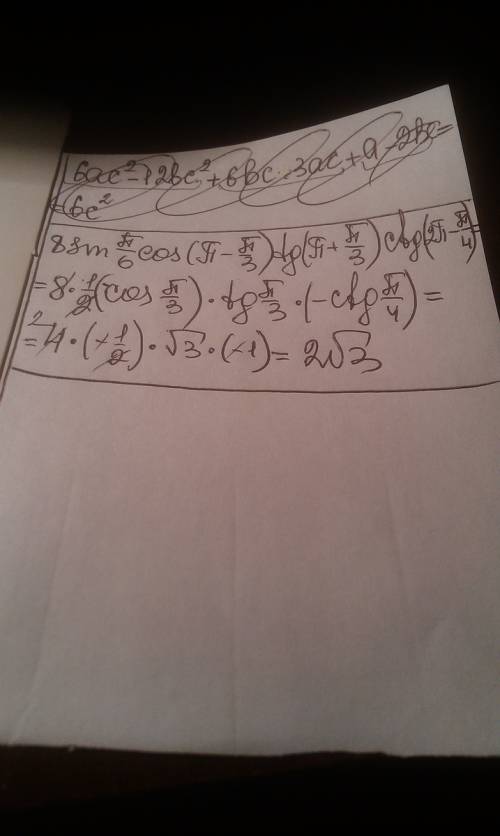 6ac² - 12bc² + 6bc - 3ac + a - 2bc =
+ 6c²
8 sin π/6 cos(π - π/3) tg(π + π/3) ctg(2π - π/4) =
= 8 · 1/2 (-cos π/3) · tg π/3 · (-ctg π/4) =
= 4 · (-1/2) · √3 · (-1) = 2√3